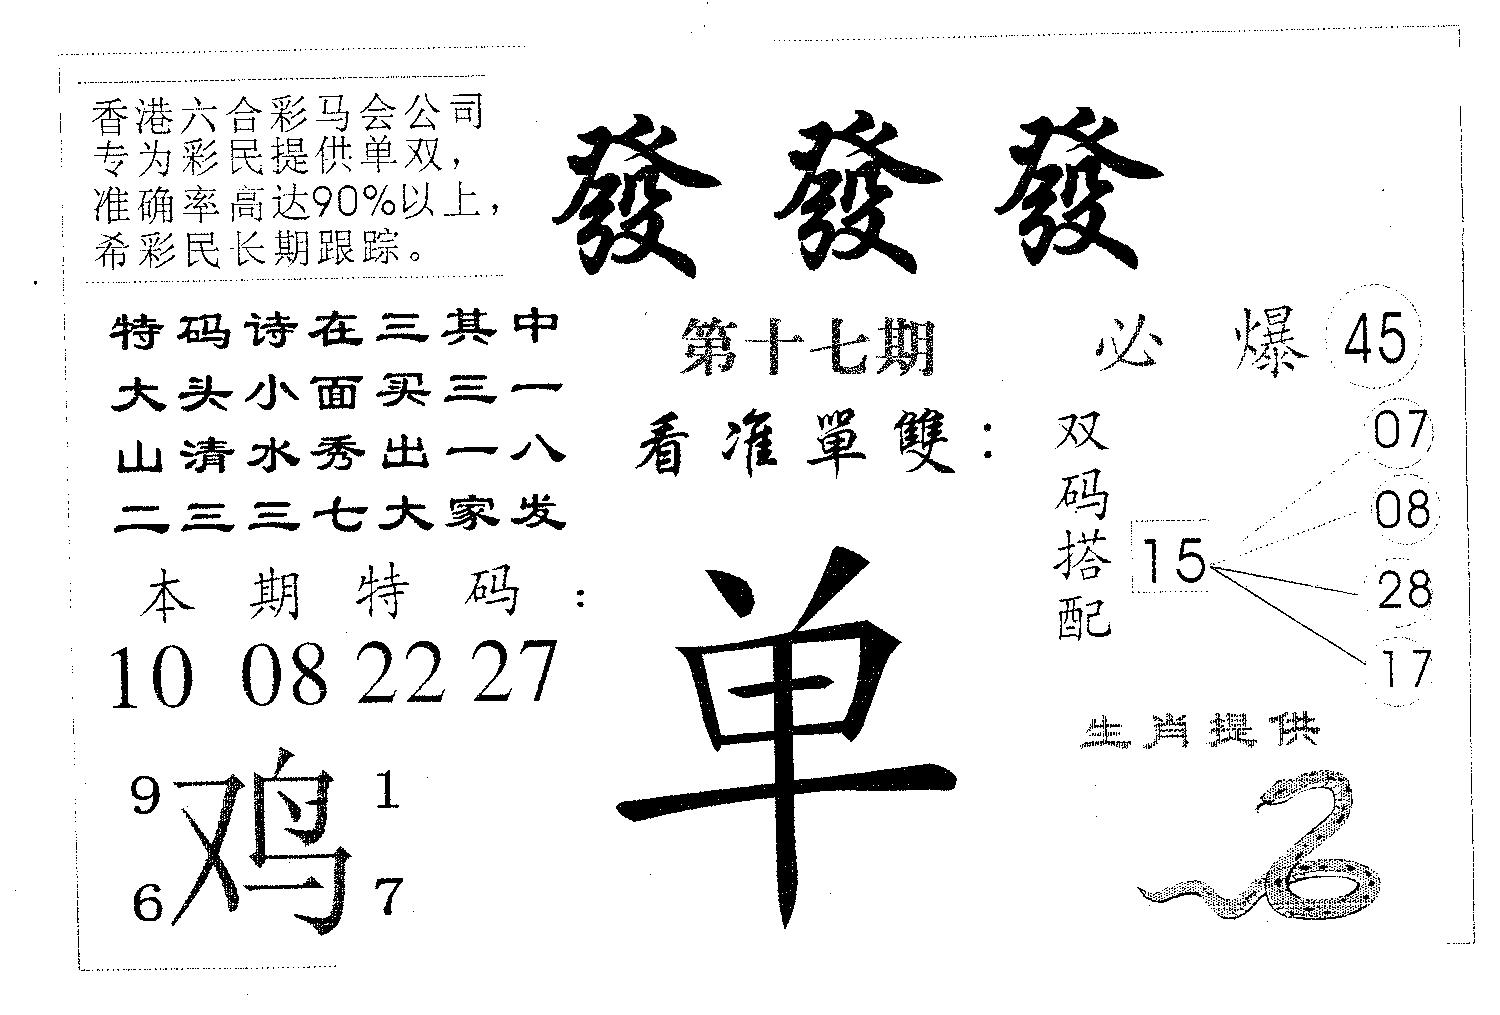 香港六合彩马会公司
专为彩民提供单双，
准确率高达90%以上，
希彩民长期跟踪。
發 發 發
特码诗在三其中
大头小面买三一
山清水秀出一八
二三三七大家发
第十七期
看准單雙：
单
必 爆 45
双码搭配
15
07
08
28
17
本期特码：
10 08 22 27
9 1
鸡
6 7
生肖提供